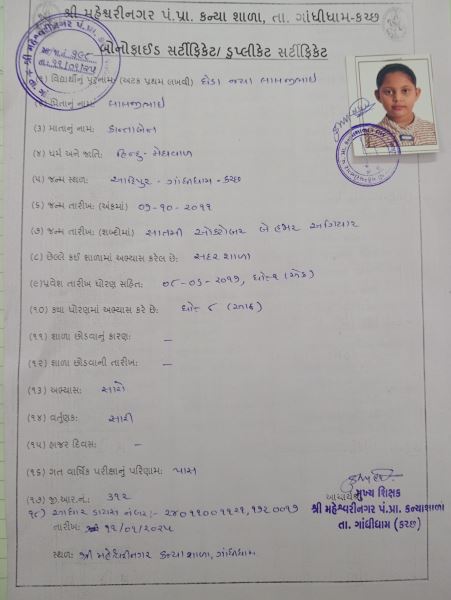 શ્રી મહેશ્વરીનગર પં.પ્રા. કન્યા શાળા, તા. ગાંધીધામ-કચ્છ
બોનોફાઈડ સર્ટીફિકેટ/ ડુપ્લીકેટ સર્ટીફિકેટ
૧) વિદ્યાર્થીનું પુરૂનામ: (અટક પ્રથમ લખવી) દોડા જયા લાલજીભાઈ
(૨) પિતાનું નામ: લાલજીભાઈ
(૩) માતાનું નામ: કાન્તાબેન
(૪) ધર્મ અને જાતિ: હિન્દુ - મેઘવાળ
(૫) જન્મ સ્થળ: આદિપુર - ગાંધીધામ - કચ્છ
(૬) જન્મ તારીખ: (અંકમાં) ૦૭-૧૦-૨૦૧૧
(૭) જન્મ તારીખ: (શબ્દોમાં) સાતમી ઓક્ટોબર બે હજાર અગિયાર
(૮) છેલ્લે કઈ શાળામાં અભ્યાસ કરેલ છે: સદર શાળા
(૯) પ્રવેશ તારીખ ધોરણ સહિત: ૦૮-૦૬-૨૦૧૭, ધો-૧ (એક)
(૧૦) કયા ધોરણમાં અભ્યાસ કરે છે: ધો- ૮ (આઠ)
(૧૧) શાળા છોડવાનું કારણ: –
(૧૨) શાળા છોડવાની તારીખ: –
(૧૩) અભ્યાસ: સારો
(૧૪) વર્તુણક: સારી
(૧૫) હાજર દિવસ: –
(૧૬) ગત વાર્ષિક પરીક્ષાનું પરિણામ: પાસ
(૧૭) જી.આર.નં.: ૩૧૨
૧૮) આધાર ડાયસ નંબર:- ૨૪૦૧૧૦૦૧૧૨૧,૧૧૨૦૦૧૭
તારીખ: ૧૨/૦૧/૨૦૨૫
સ્થળ: શ્રી મહેશ્વરીનગર કન્યા શાળા, ગાંધીધામ
આચાર્ય
મુખ્ય શિક્ષક
શ્રી મહેશ્વરીનગર પં.પ્રા. કન્યાશાળા
તા. ગાંધીધામ (કચ્છ)